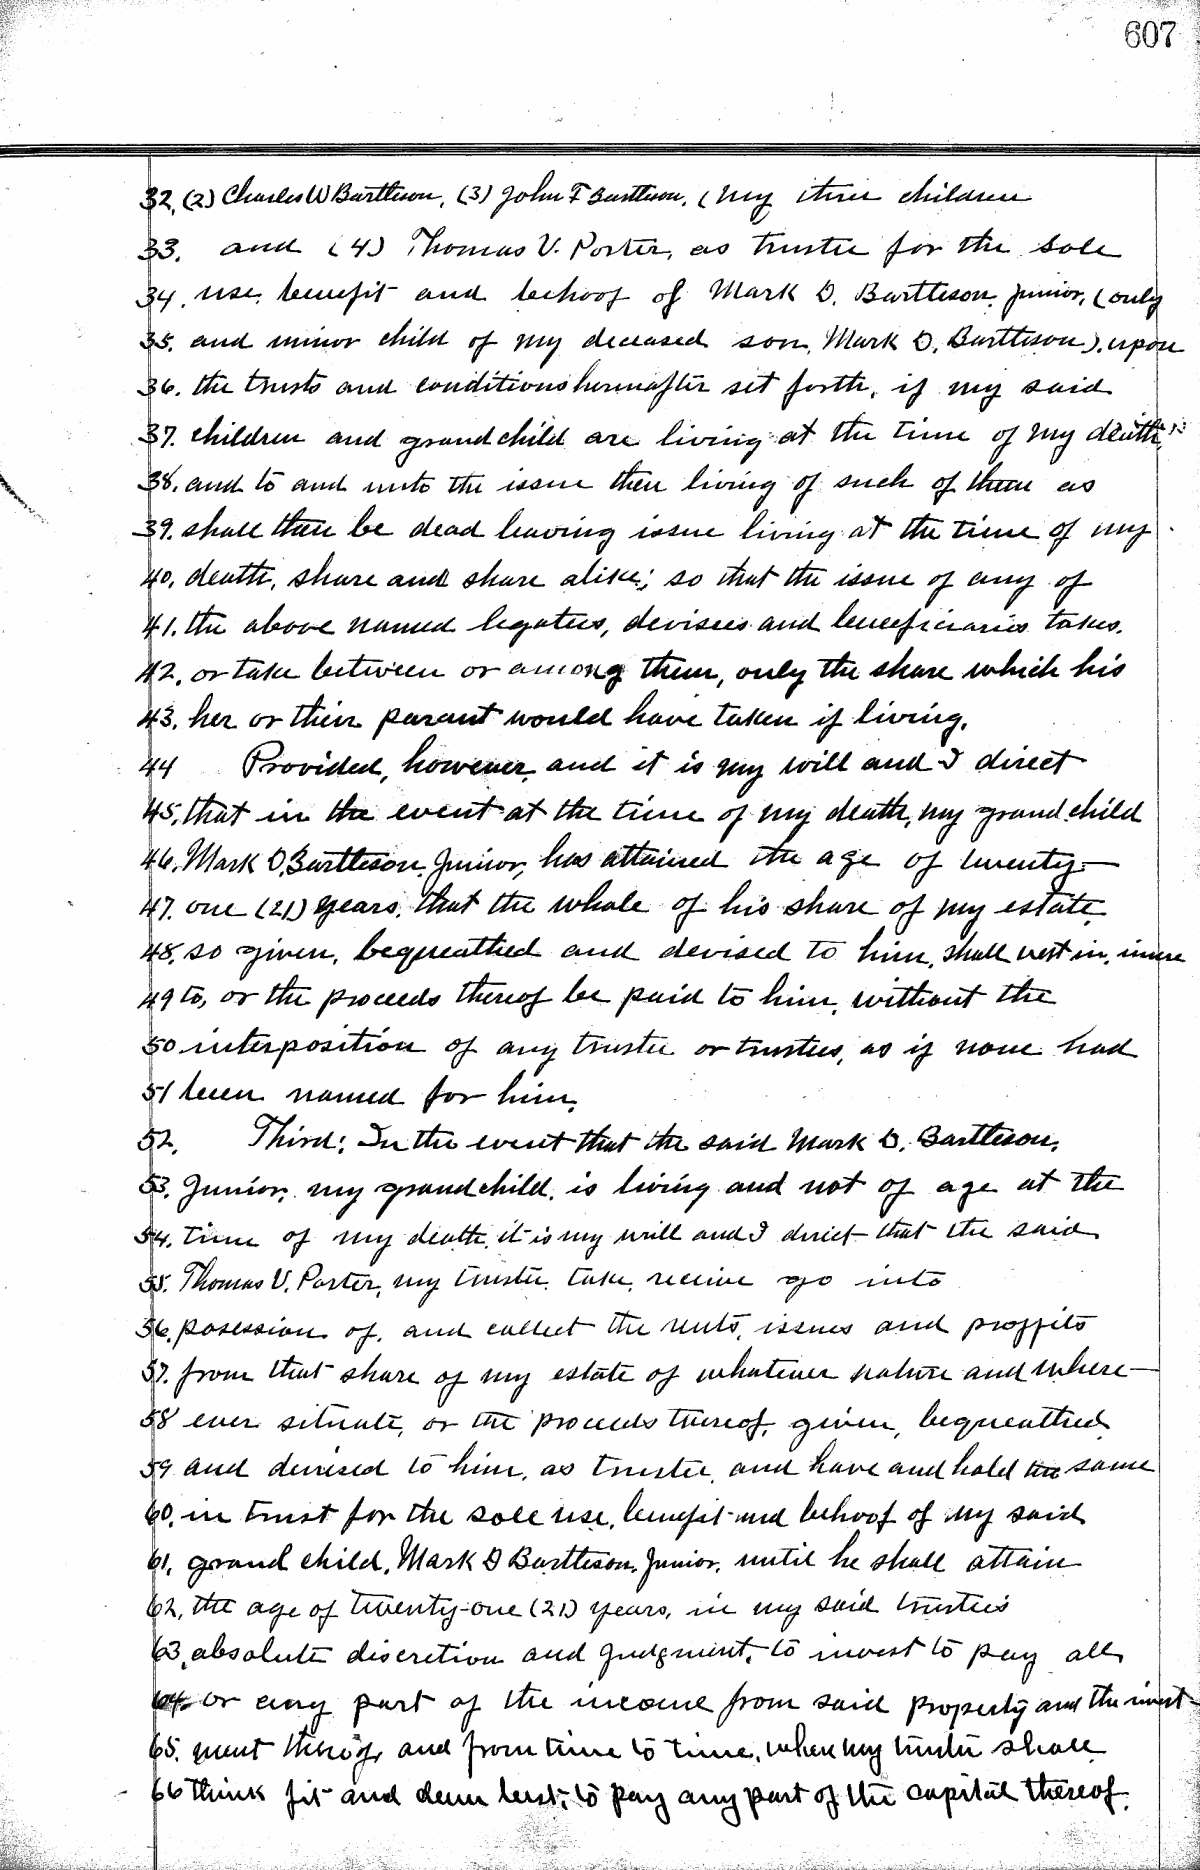 607
32, (2) Charles W Bartleson, (3) John F Bartleson, (my three children
33. and (4) Thomas V. Porter, as trustee for the sole
34. use, benefit and behoof of Mark D. Bartleson, Junior, (only
35. and minor child of my deceased son, Mark D. Bartleson), upon
36. the trusts and conditions hereinafter set forth, if my said
37. children and grandchild are living at the time of my death,
38. and to and unto the issue then living of such of them as
39. shall then be dead leaving issue living at the time of my
40. death, share and share alike; so that the issue of any of
41. the above named legatees, devisees and beneficiaries takes,
42. or take between or among them, only the share which his
43. her or their parant would have taken if living.
44 Provided, however, and it is my will and I direct
45. that in the event at the time of my death, my grand child
46. Mark D. Bartleson, Junior, has attained the age of twenty-
47. one (21) years, that the whole of his share of my estate
48. so given, bequeathed and devised to him, shall vest in, inure
49 to, or the proceeds thereof be paid to him, without the
50 interposition of any trustee or trustees, as if none had
51 been named for him.
52. Third: In the event that the said Mark D. Bartleson,
53. Junior, my grandchild, is living and not of age at the
54. time of my death, it is my will and I direct that the said
55. Thomas V. Porter, my trustee, take, receive go into
56. posession of, and collect the rents, issues and proffits
57. from that share of my estate of whatever nature and where-
58 ever situate, or the proceeds thereof, given, bequeathed
59 and devised to him, as trustee, and have and hold the same
60. in trust for the sole use, benefit and behoof of my said
61. grand child, Mark D Bartleson, Junior, until he shall attain
62. the age of twenty-one (21) years, in my said trustees
63. absolute discretion and judgment, to invest to pay all
64. or any part of the income from said property and the invest-
65. ment thereof, and from time to time, when my trustee shall
66 think fit and deem best, to pay any part of the capital thereof.